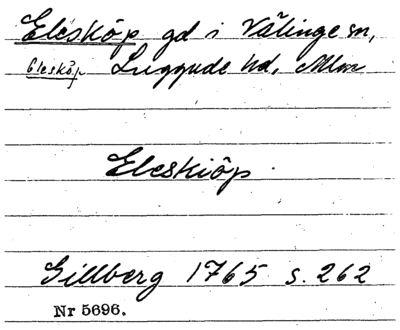 Elesköp gd i Välinge sn,
Elesköp Luggude hd, Mlm
Eleskiöp
Gillberg 1765 s. 262
Nr 5696.